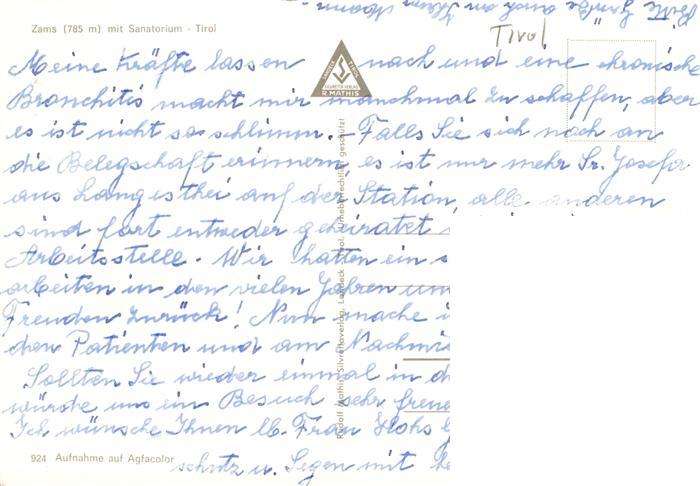 Bitte Grüße auch an Ihren Mann
Zams (785 m) mit Sanatorium - Tirol
Tirol
R. MATHIS
Meine Kräfte lassen nach und eine chronische
Bronchitis macht mir manchmal zu schaffen, aber
es ist nicht so schlimm. - Falls Sie sich noch an
die Belegschaft erinnern, es ist nur mehr Sr. Josefa
aus Langesthei auf der Station, alle anderen
sind fort entweder geheiratet
Arbeitsstelle. Wir hatten ein
arbeiten in den vielen Jahren und
Freuden zurück! Nun mache i
den Patienten und am Nachmi
Sollten Sie wieder einmal in d
würde uns ein Besuch sehr freue
Ich wünsche Ihnen lb. Frau
schutz u. Segen mit he
Rudolf Mathis, Silvrettaverlag, Landeck - Tirol. Urheberrechtlich geschützt
924 Aufnahme auf Agfacolor